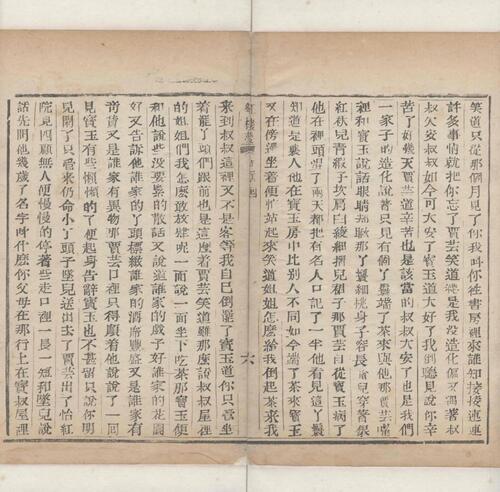 笑道只從那個月見了你我叫你往書房裡來誰知接接連連
許多事情就把你忘了賈芸笑道總是我沒造化偏又遇著叔
叔欠安叔叔如今可大安了寶玉道大好了我倒聽見說你辛
苦了好幾天賈芸道辛苦也是該當的叔叔大安了也是我們
一家子的造化說着只見有個丫鬟端了茶來與他那賈芸嘴
裡和寶玉說話眼睛却瞅那丫鬟細挑身子容長臉兒穿著銀
紅袄兒青緞子坎肩白綾細褶兒裙子那賈芸自從寶玉病了
他在裡頭混了兩天都把有名人口記了一半他看見這丫鬟
知道是襲人他在寶玉房中比別人不同如今端了茶來寶玉
又在傍邊坐着便忙站起來笑道姐姐怎麼給我倒起茶來我
紅樓夢
六
來到叔叔這裡又不是客等我自己倒罷了寶玉道你只管坐
着罷丫頭們跟前也是這麼着賈芸笑道雖那麼說叔叔屋裡
的姐姐們我怎麼敢放肆呢一面說一面坐下吃茶那寶玉便
和他說些沒要緊的散話又說道誰家的戲子好誰家的花園
好又告訴他誰家的丫頭標緻誰家的酒席豐盛又是誰家有
奇貨又是誰家有異物那賈芸口裡只得順着他說說了一回
見寶玉有些懶懶的了便起身告辭寶玉也不甚留只說你明
兒閒了只管來仍命小丫頭子墜兒送出去了賈芸出了怡紅
院見四顧無人便慢慢的停著些走口裡一長一短和墜兒說
話先問他幾歲了名字叫什麼你父母在那行上在寶叔屋裡